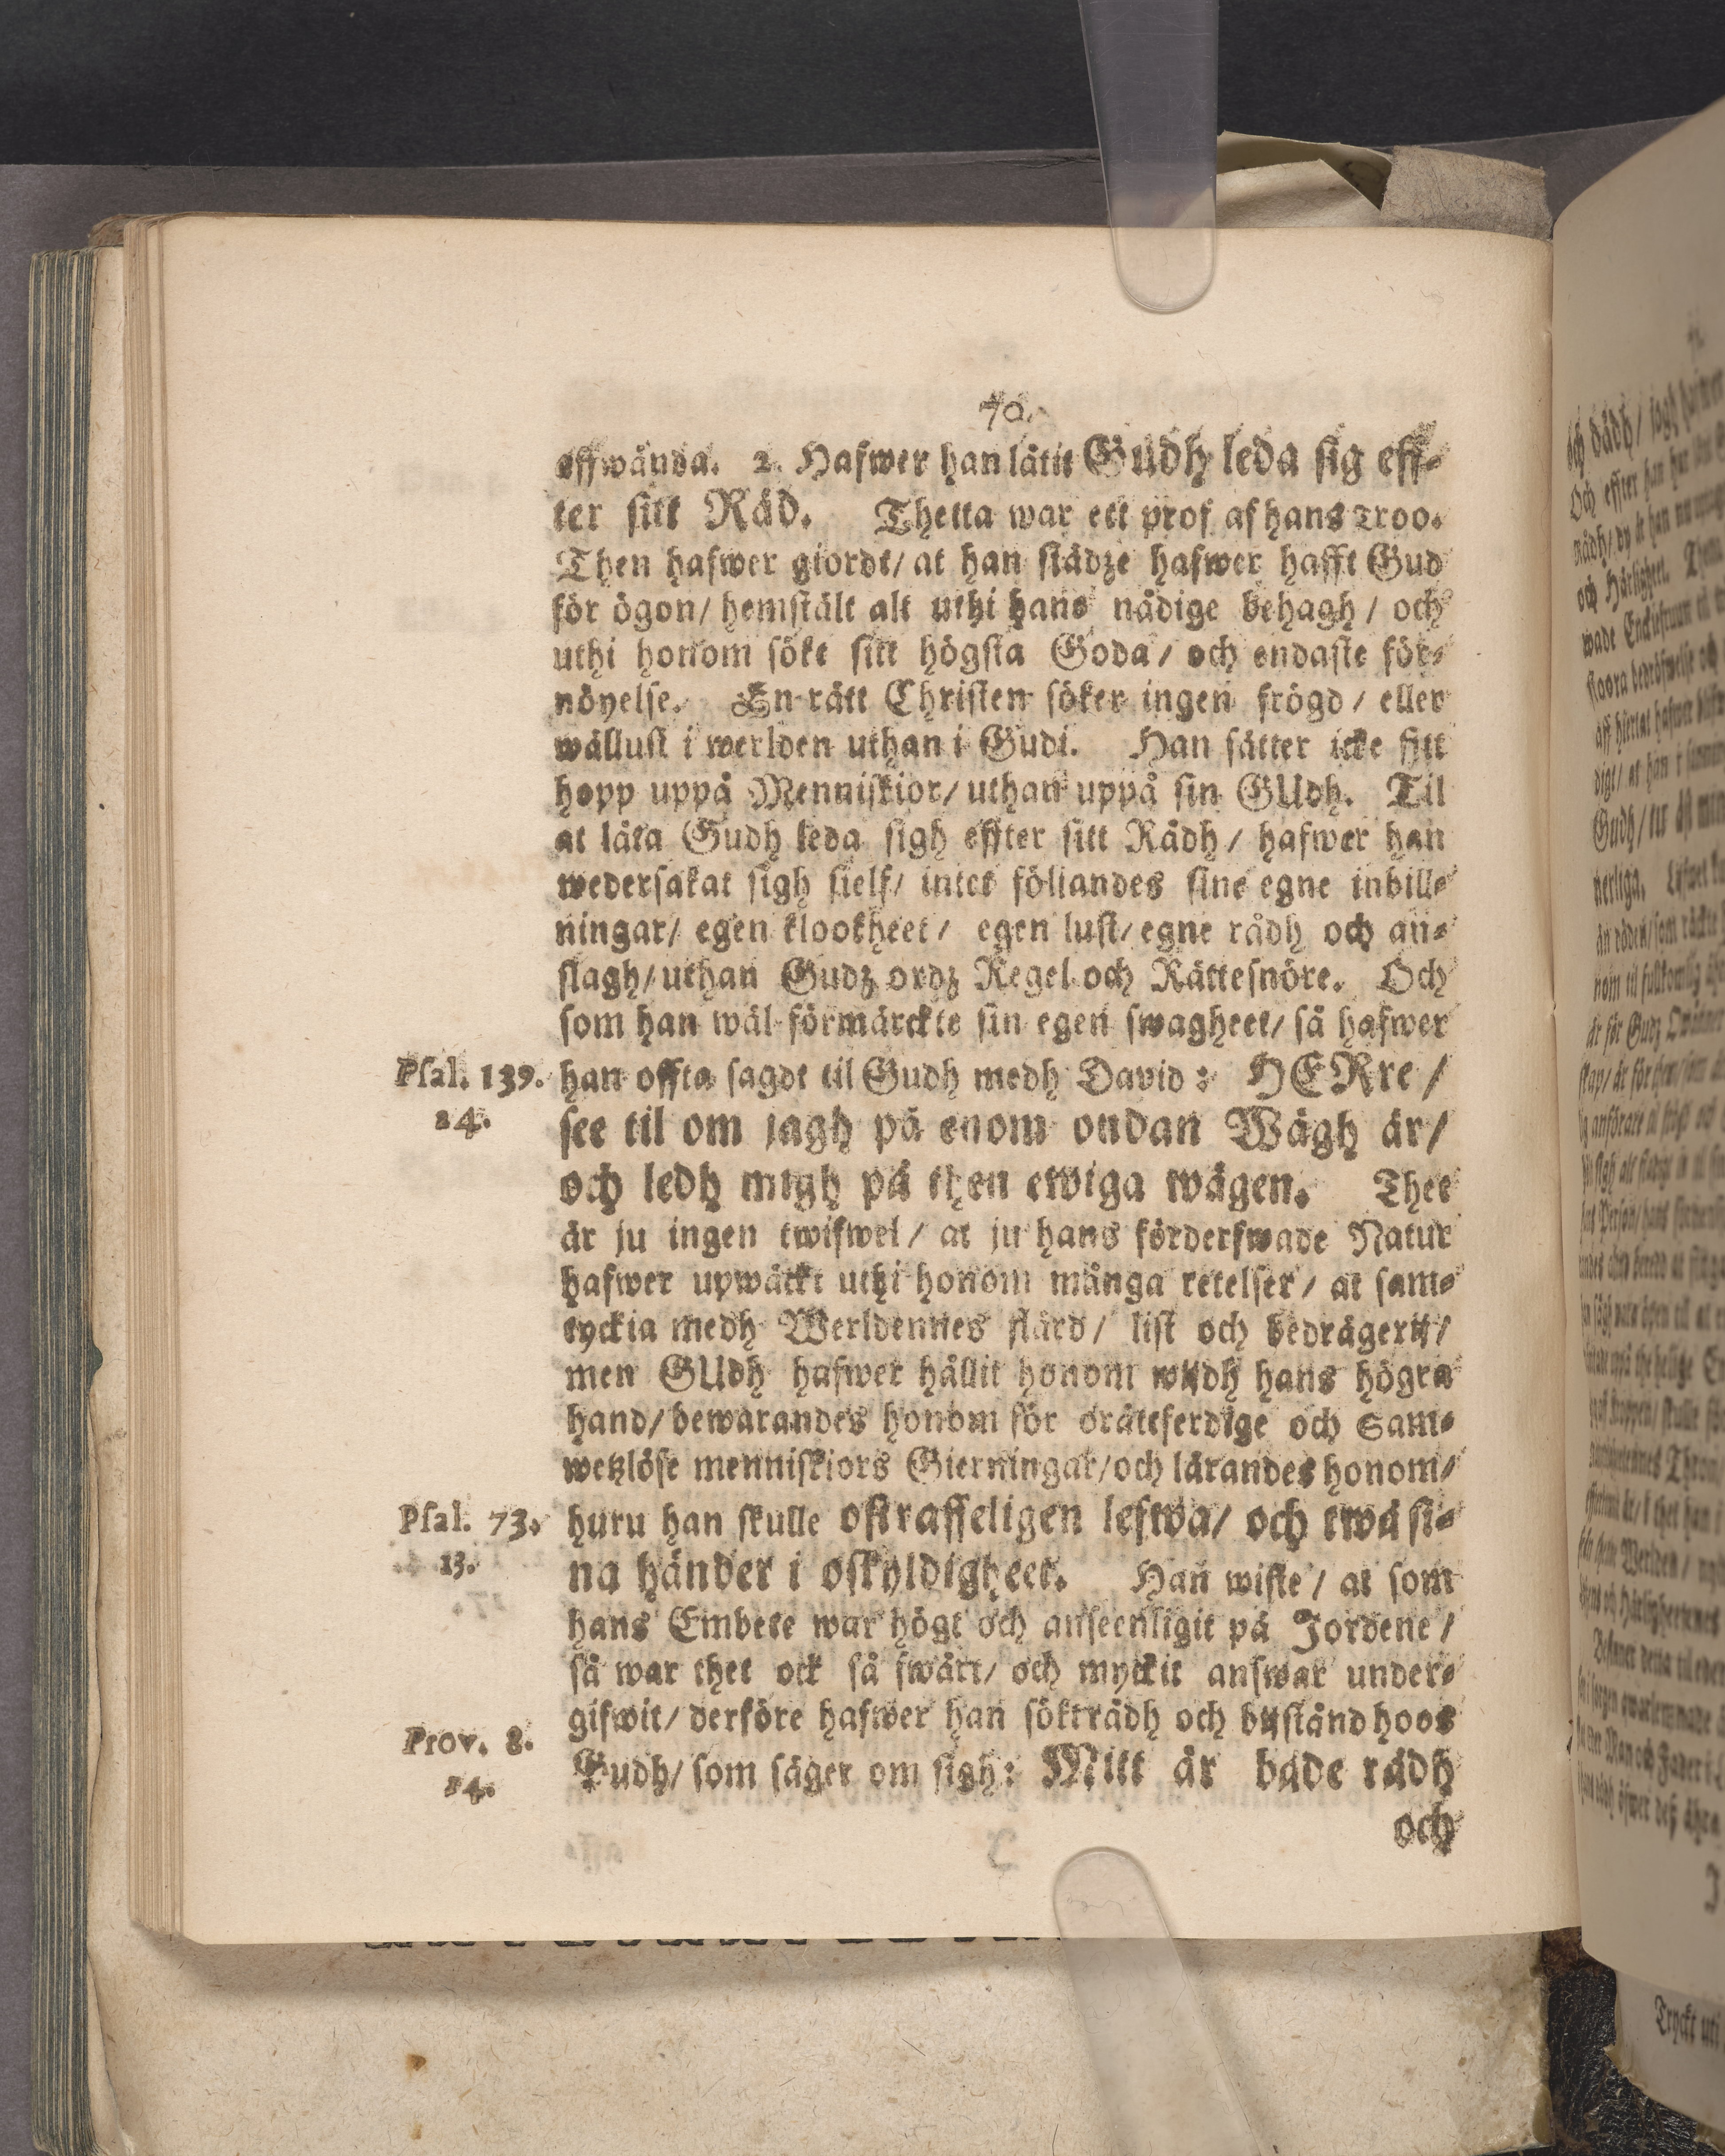 70.
effwända. 2. Hafwer han låtit Gudh leda sig eff-
ter sitt Råd. Thetta war ett prof af hans Troo.
Then hafwer giordt/ at han städze hafwer hafft Gud
för ögon/ hemstält alt uthi hans nådige behagh / och
uthi honom sökt sitt högsta Goda / och endaste för-
nöyelse. En rätt Christen söker ingen frögd / eller
wällust i werlden uthan i Gudi. Han sätter icke sitt
hopp uppå Menniskior/ uthan uppå sin GUdh. Til
at låta Gudh leda sigh effter sitt Rådh / hafwer han
wedersakat sigh sielf/ intet föliandes sine egne inbill-
ningar/ egen klookheet / egen lust/ egne rådh och an-
slagh/ uthan Gudz ordz Regel och Rättesnöre. Och
som han wäl förmärckte sin egen swagheet/ så hafwer
Psal. 139. han offta sagdt til Gudh medh David: HERre /
24. see til om jagh på enom ondan Wägh är/
och ledh migh på then ewiga wägen. Thet
är ju ingen twifwel / at ju hans förderfwade Natur
hafwer upwäckt uthi honom många retelser / at sam-
tyckia medh Werldennes flärd / list och bedrägerij/
men GUdh hafwer hållit honom widh hans högra
hand/ bewarandes honom för orättferdige och Sam-
wetzlöse menniskiors Gierningar/ och lärandes honom/
Psal. 73. huru han skulle ostraffeligen lefwa/ och twå si-
13. na händer i oskyldigheet. Han wiste / at som
hans Embete war högt och anseenligit på Jordene /
så war thet ock så swårt/ och myckit answar under-
gifwit/ derföre hafwer han sökt rådh och bijstånd hoos
Prov. 8. Gudh/ som säger om sigh: Mitt är både rådh
24.
och